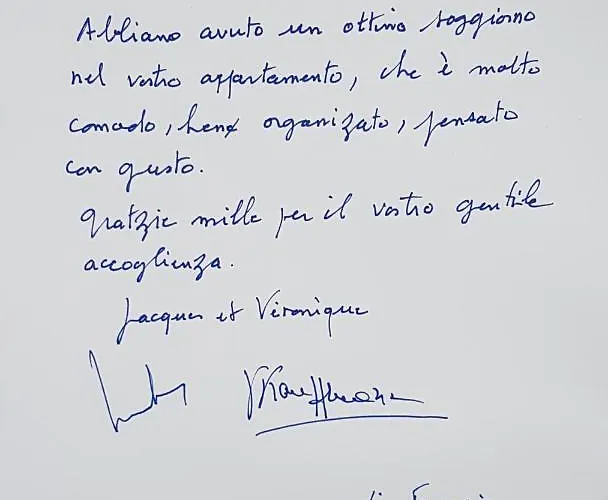 Abbiamo avuto un ottimo soggiorno
nel vostro appartamento, che è molto
comodo, ben organizato, pensato
con gusto.
Gratzie mille per il vostro gentile
accoglienza.
Jacques et Véronique
VKauffmann